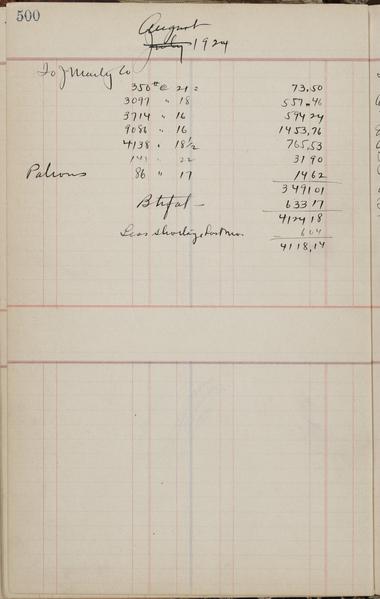 500
August
July 1924
To J Manly Co
350 # @ 21 = 73.50
3097 " 18 557.46
3714 " 16 594 24
9086 " 16 1453,76
4138 " 18 1/2 765,53
" 22 31 90
Patrons 86 " 17 14 62
3491 01
633 17
4124 18
Less shortage last mo. 6 04
4118,14